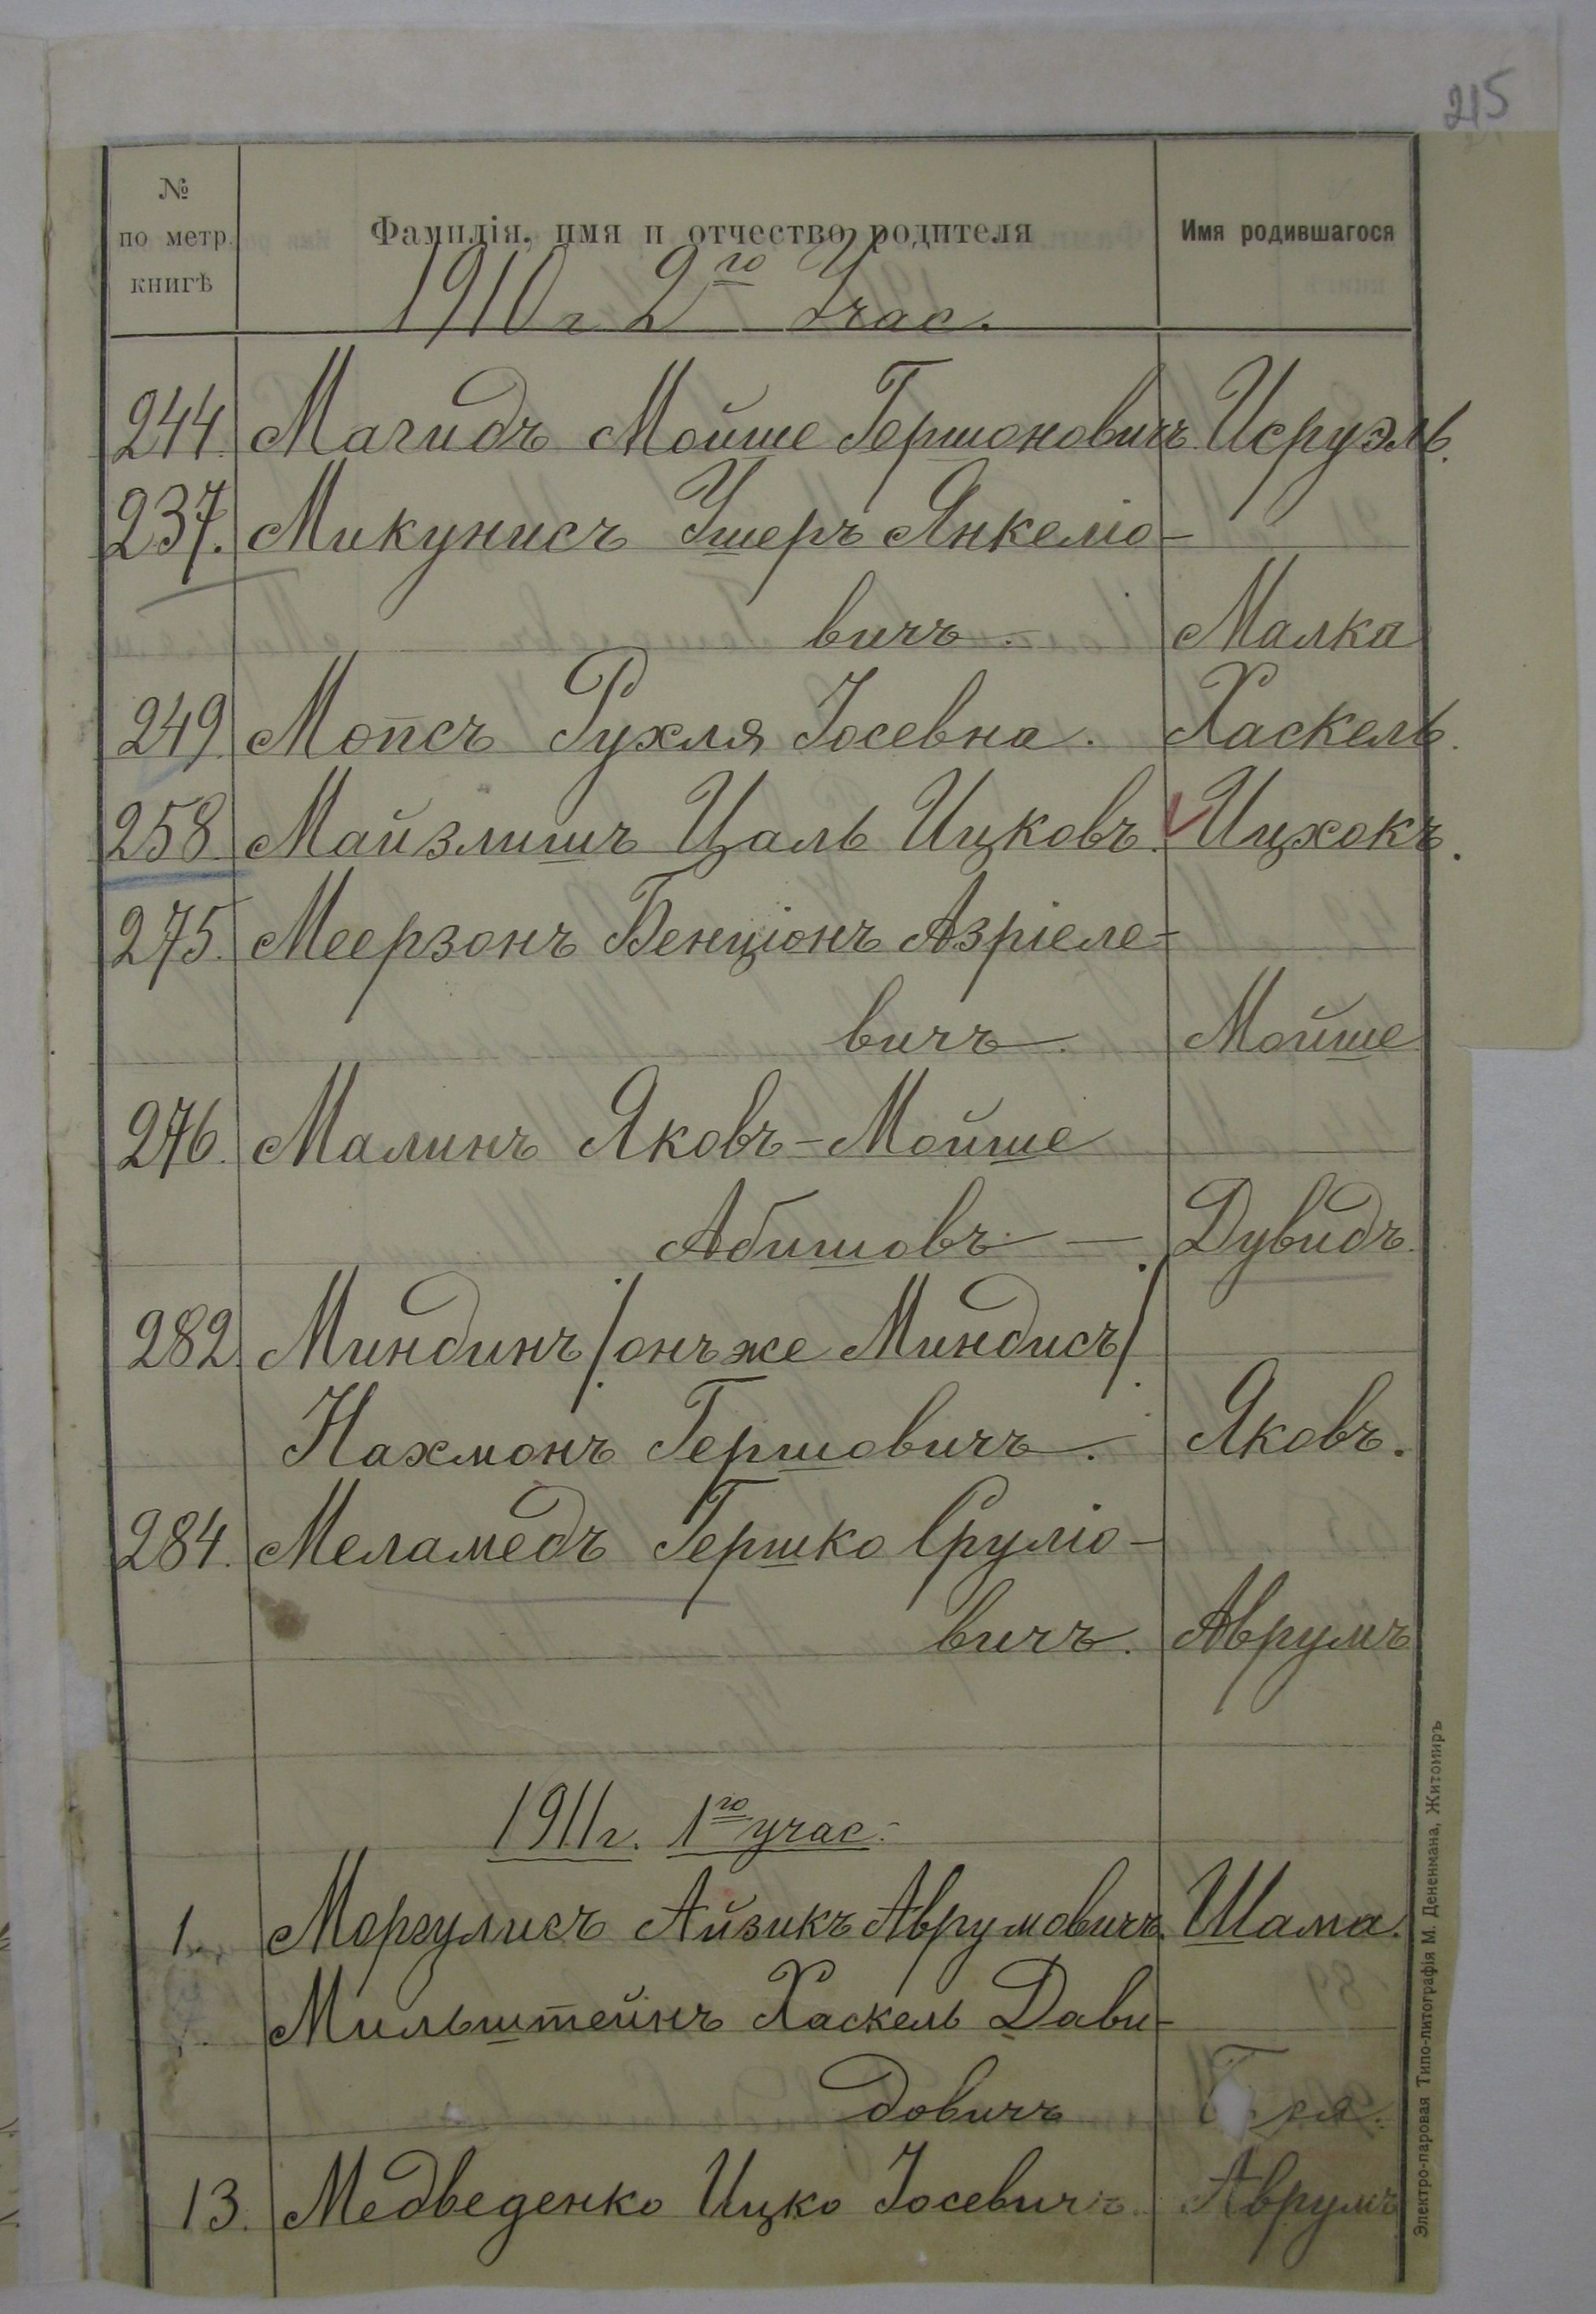 215
№ по метр. книгѣ
Фамилія, имя и отчество родителя
Имя родившагося
1910 г 2го Учас.
244. Магидъ Мойше Гершоновичъ Исруэль.
237. Микунисъ Ушеръ Янкеліо-
вичъ. Малка
249. Мопсъ Рухля Іосевна. Хаскель.
258 Майзлишъ Цаль Ицковъ. Ицхокъ.
275. Меерзонъ Бенціонъ Азріеле-
вичъ. Мойше
276. Малинъ Яковъ-Мойше
Абишовъ — Дувидъ.
282 Миндинъ /онъ же Миндисъ/
Нахмонъ Гершовичъ. Яковъ.
284. Меламедъ Гершко Сруліо-
вичъ. Аврумъ
1911 г. 1го учас.
1. Моргулисъ Айзикъ Аврумовичъ. Шама.
Мильштейнъ Хаскель Дави-
довичъ
13. Медведенко Ицко Іосевичъ. Аврумъ
Электро-паровая Типо-литографія М. Дененмана, Житомиръ